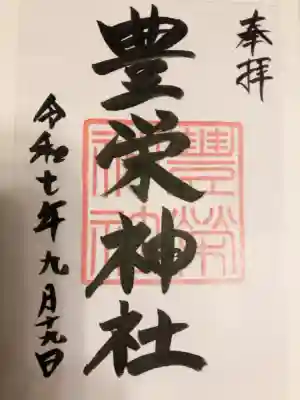 奉拝
豊栄神社
豊榮神社
令和七年九月十九日